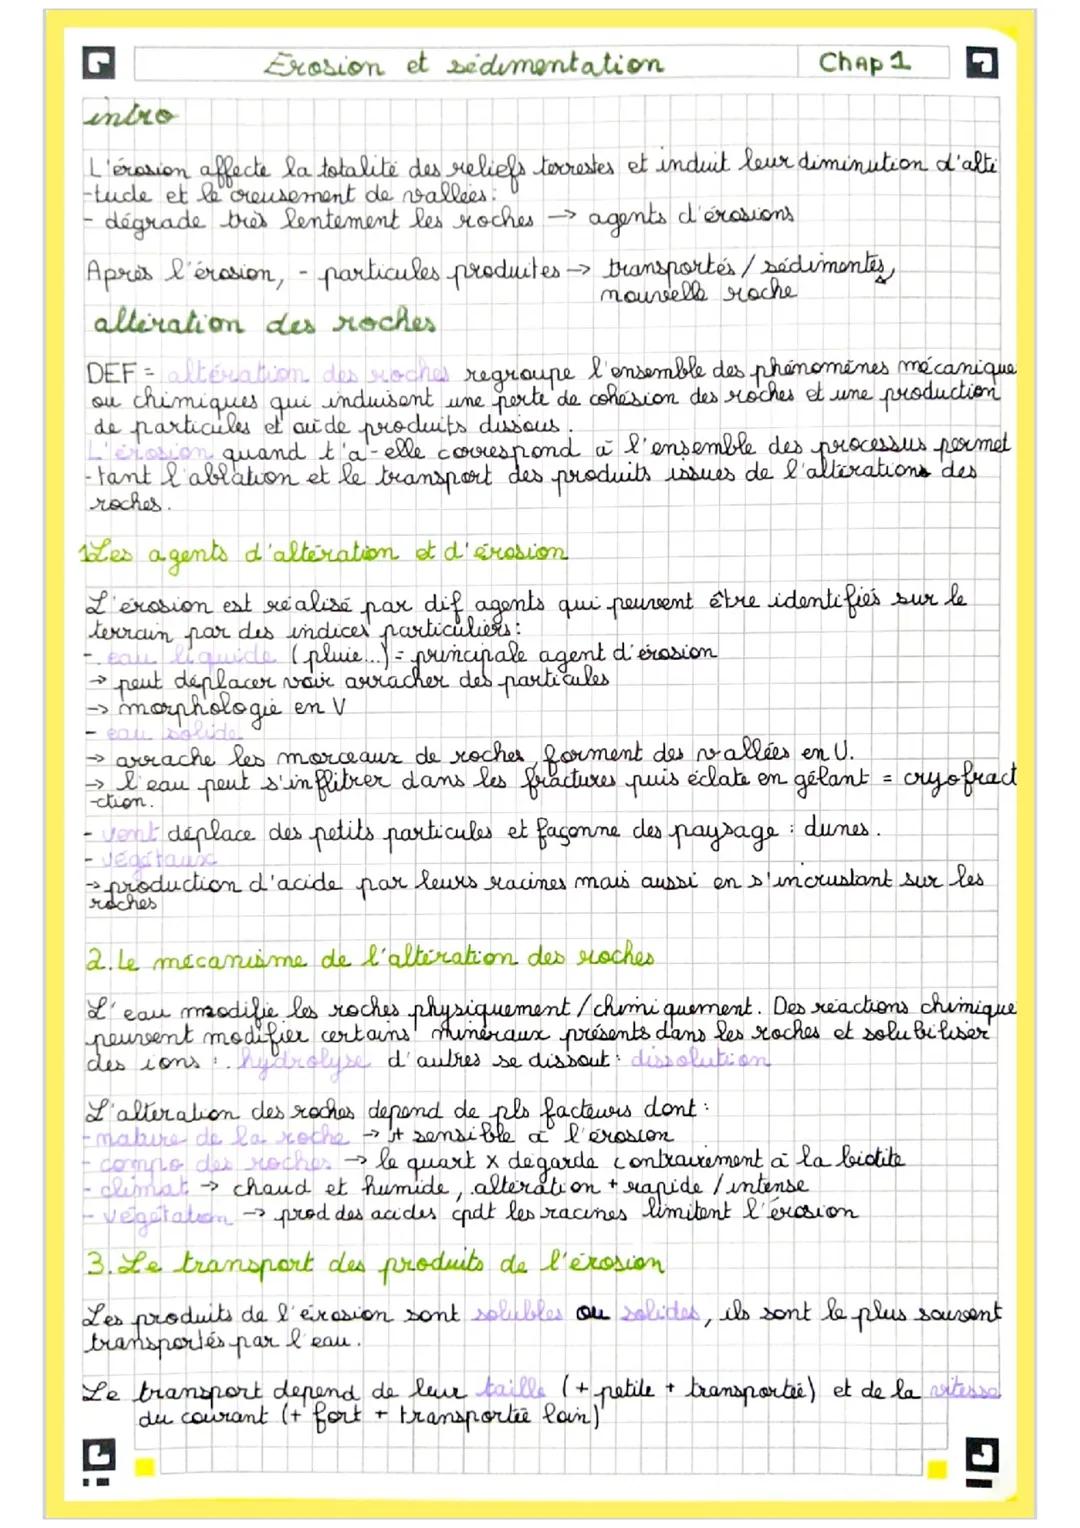 Erosion et sédimentation
Chap 1
intro
L'érosion affecte la totalité des reliefs terrestes et induit leur diminution d'alti
-tude et le creusement de vallées :
- dégrade très lentement les roches → agents d'érosions
Après l'érosion, - particules produites → transportés / sédimentés,
nouvelle roche
altération des roches
DEF = altération des roches regroupe l'ensemble des phénomènes mécanique
ou chimiques qui induisent une perte de cohésion des roches et une production
de particules et ou de produits dissous.
L'érosion quand t'a-elle correspond à l'ensemble des processus permet
-tant l'ablation et le transport des produits issues de l'altérations des
roches.
1 Les agents d'altération et d'érosion
L'érosion est réalisé par dif agents qui peuvent être identifiés sur le
terrain par des indices particuliers :
- eau liquide (pluie...) = principale agent d'érosion
→ peut déplacer voir arracher des particules
→ morphologie en V
- eau solide
→ arrache les morceaux de roches, forment des vallées en U.
→ l'eau peut s'inflitrer dans les fractures puis éclate en gélant = cryofract
-ction.
- vent déplace des petits particules et façonne des paysage : dunes.
- végétaux
→ production d'acide par leurs racines mais aussi en s'incrustant sur les
roches
2. Le mécanisme de l'altération des roches
L'eau modifie les roches physiquement / chimiquement. Des réactions chimique
peuvent modifier certains minéraux présents dans les roches et solubiliser
des ions : hydrolyse d'autres se dissout : dissolution
L'altération des roches dépend de pls facteurs dont :
- nature de la roche → + sensible à l'érosion
- compo des roches → le quart x dégarde contrairement à la biotite
- climat → chaud et humide, altération + rapide / intense
- végétation → prod des acides cpdt les racines limitent l'érosion
3. Le transport des produits de l'érosion
Les produits de l'érosion sont solubles ou solides, ils sont le plus souvent
transportés par l'eau.
Le transport dépend de leur taille (+ petite + transportée) et de la vitesse
du courant (+ fort + transportée loin)